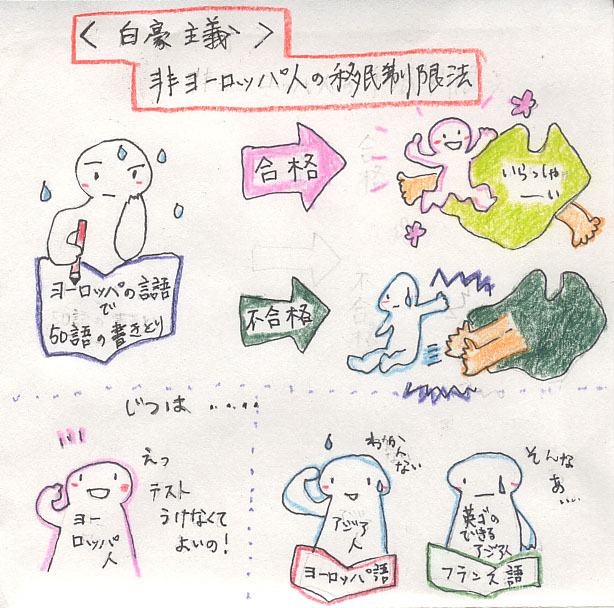 〈白豪主義〉
非ヨーロッパ人の移民制限法
ヨーロッパの言語
で
50語の書きとり
合格
いらっしゃ
ーい
不合格
じつは.....
えっ
テスト
うけなくて
よいの!
ヨー
ロッパ
人
わかん
ない
アジア
人
ヨーロッパ語
そんな
あ...
英ゴの
できる
アジア人
フランス語